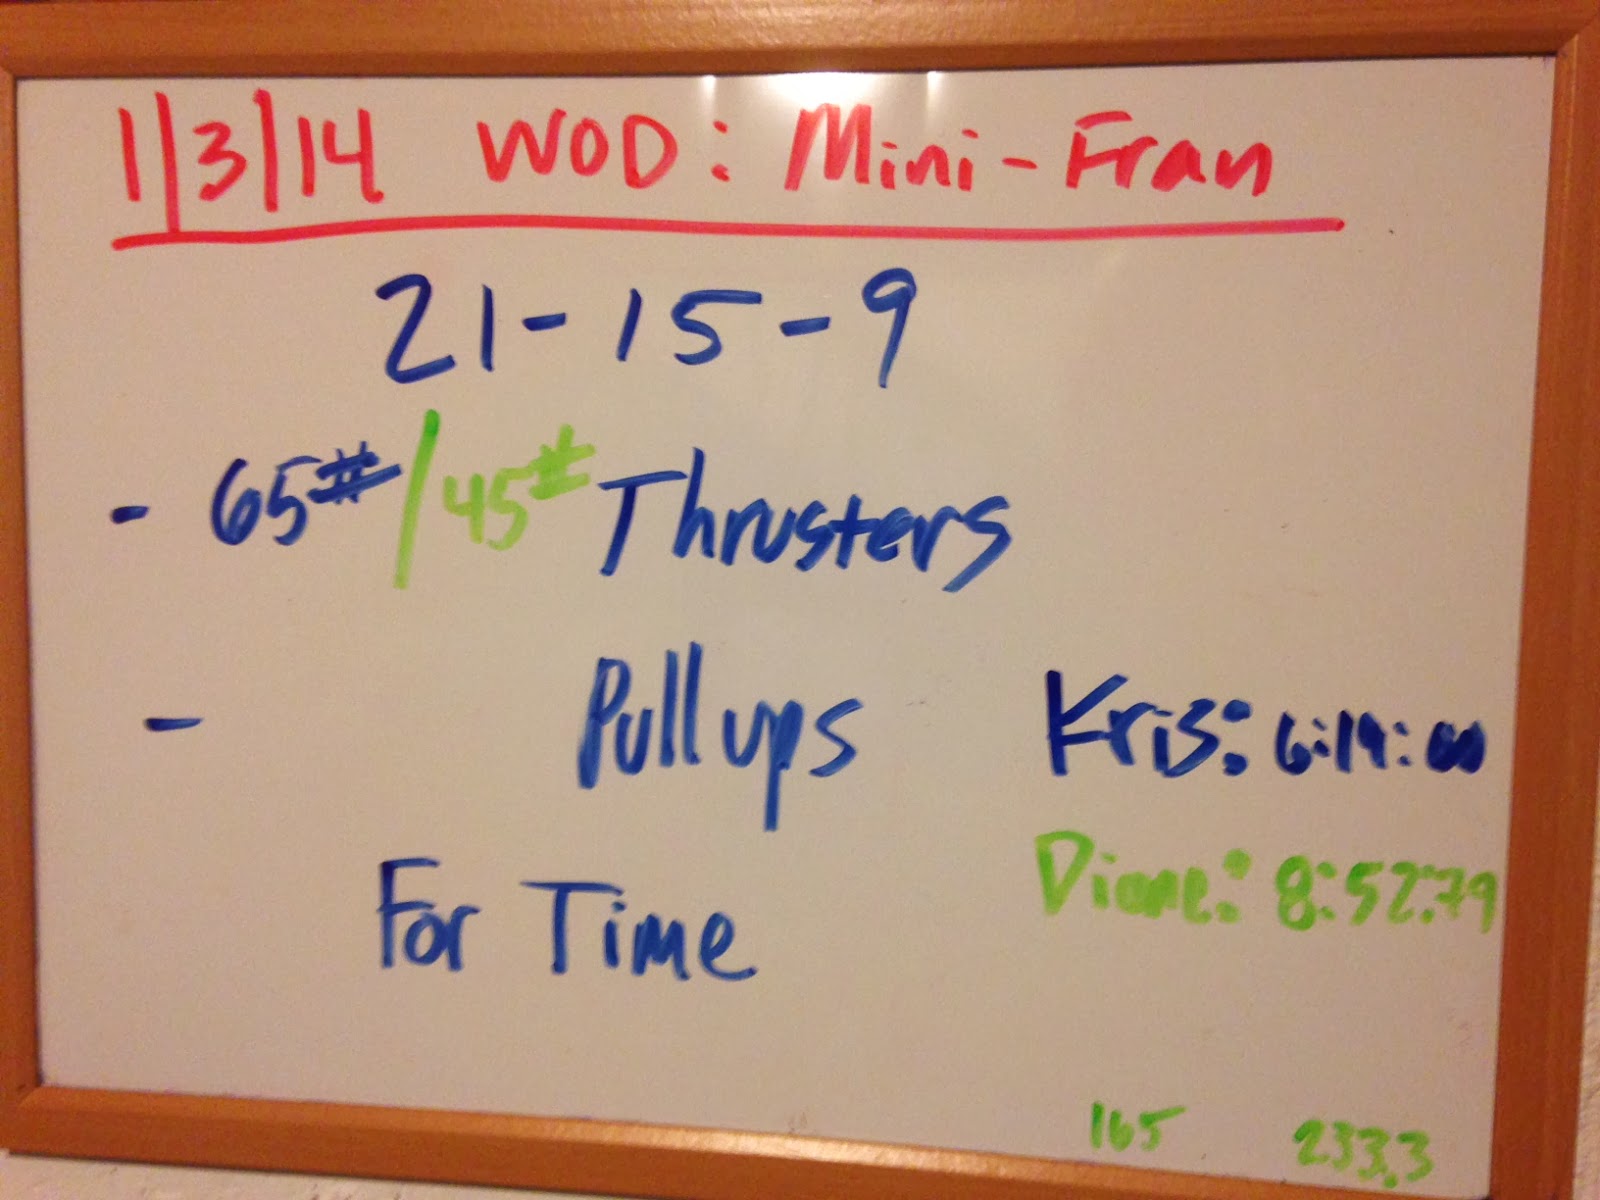 1/3/14 WOD: Mini-Fran
21-15-9
- 65#/45# Thrusters
- Pull ups
Kris: 6:19:00
Diane: 8:52:79
For Time
165 233.3